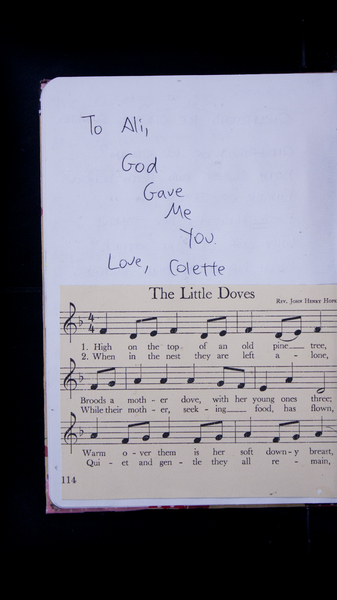 To Ali,
God
Gave
Me
You.
Love, Colette
The Little Doves
REV. JOHN HENRY HOPK
4
4
1. High on the top of an old pine tree,
2. When in the nest they are left a - lone,
Broods a moth - er dove, with her young ones three;
While their moth - er, seek - ing food, has flown,
Warm o - ver them is her soft down - y breast,
Qui - et and gen - tle they all re - main,
114